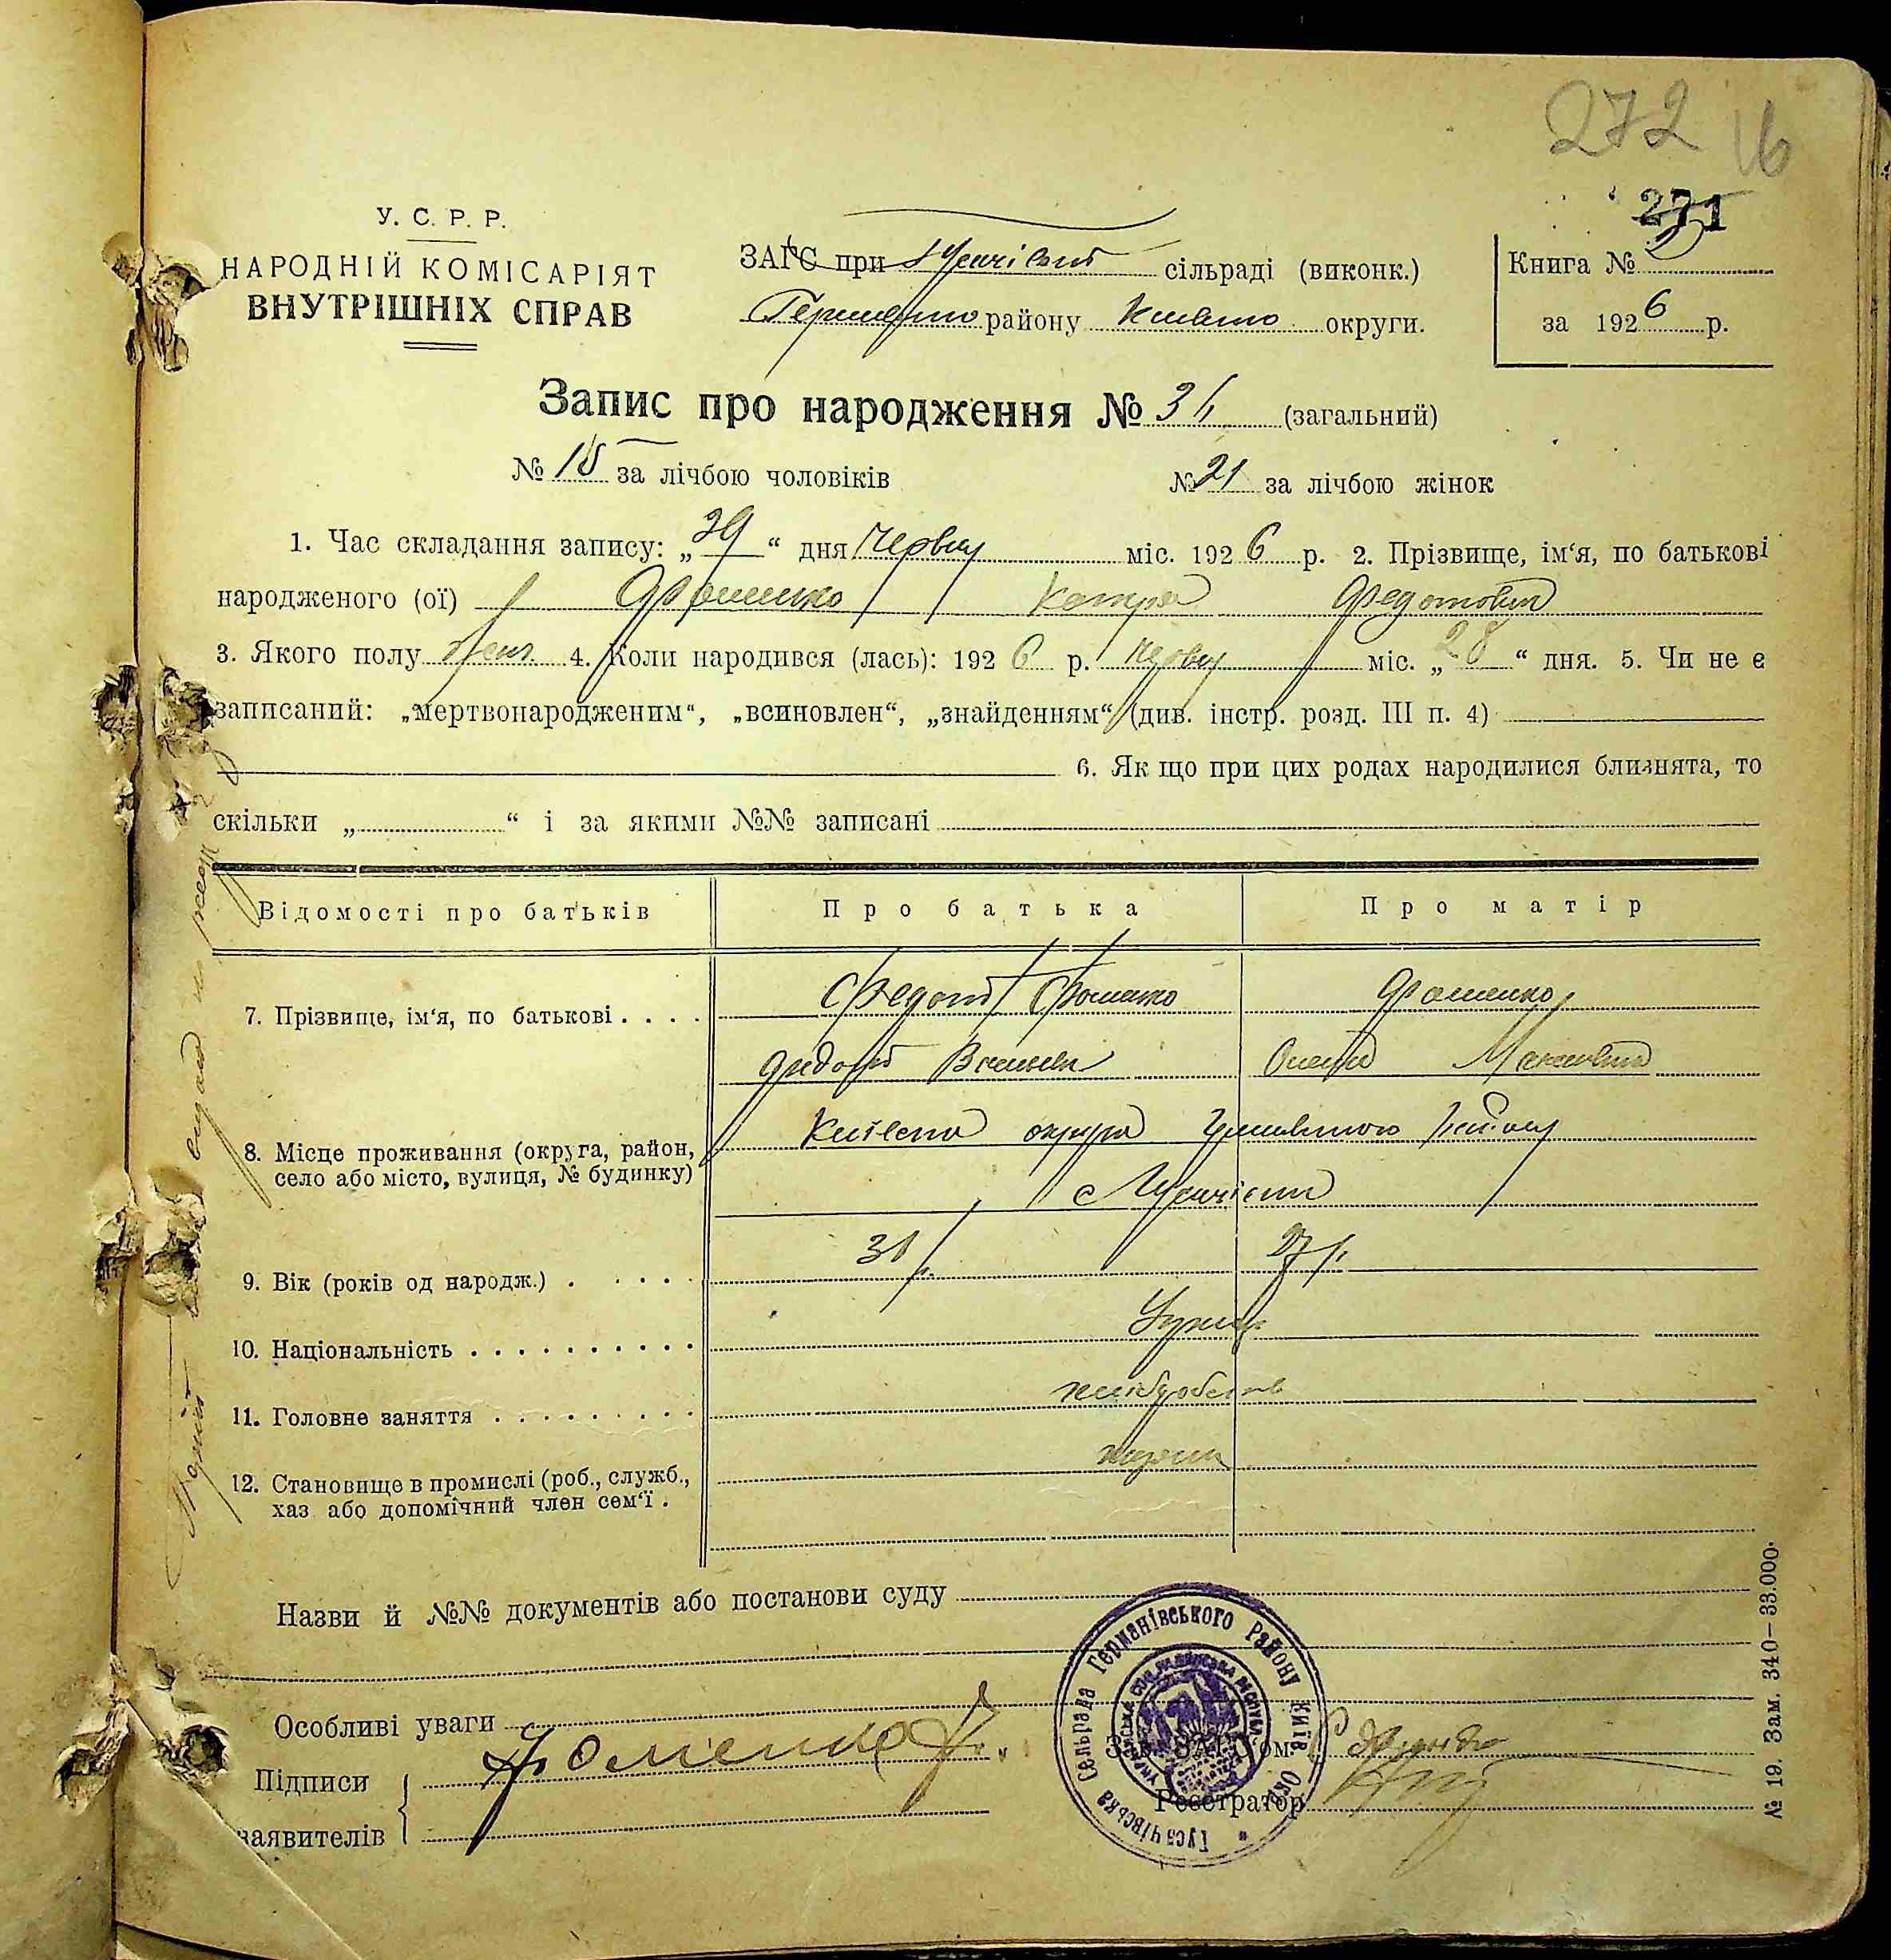 272 16
271
У. С. Р. Р.
НАРОДНІЙ КОМІСАРІЯТ
ВНУТРІШНІХ СПРАВ
ЗАГС при сільраді (виконк.)
району округи.
Книга №
за 1926 р.
Запис про народження № (загальний)
№ за лічбою чоловіків
№ 21 за лічбою жінок
1. Час складання запису: „29“ дня Червня міс. 1926 р. 2. Прізвище, ім‘я, по батькові
народженого (ої) Фоменко Катря Федотовна
3. Якого полу жен. 4. Коли народився (лась): 1926 р. червня міс. „28“ дня. 5. Чи не є
записаний: „мертвонародженим“, „всиновлен“, „знайденням“ (див. інстр. розд. III п. 4)
6. Як що при цих родах народилися близнята, то
скільки „ “ і за якими №№ записані
Відомості про батьків
Про батька
Про матір
7. Прізвище, ім‘я, по батькові . . . .
Федот Фоменко
Фоменко
Федот
8. Місце проживання (округа, район,
село або місто, вулиця, № будинку)
Київська округа району
с
9. Вік (років од народж.) . . . . .
31 р.
27 р.
10. Національність . . . . . . . . . .
Україн
11. Головне заняття . . . . . . . . .
хліборобство
12. Становище в промислі (роб., служб.,
хаз або допомічний член сем‘ї .
Назви й №№ документів або постанови суду
Особливі уваги
Підписи
заявителів
Фоменко Ф.
Зав. ЗАГС‘ом
Реєстратор
Гусачівська Сельрада Германівського Району Київ. Окр.
№ 19. Зам. 340—33.000.